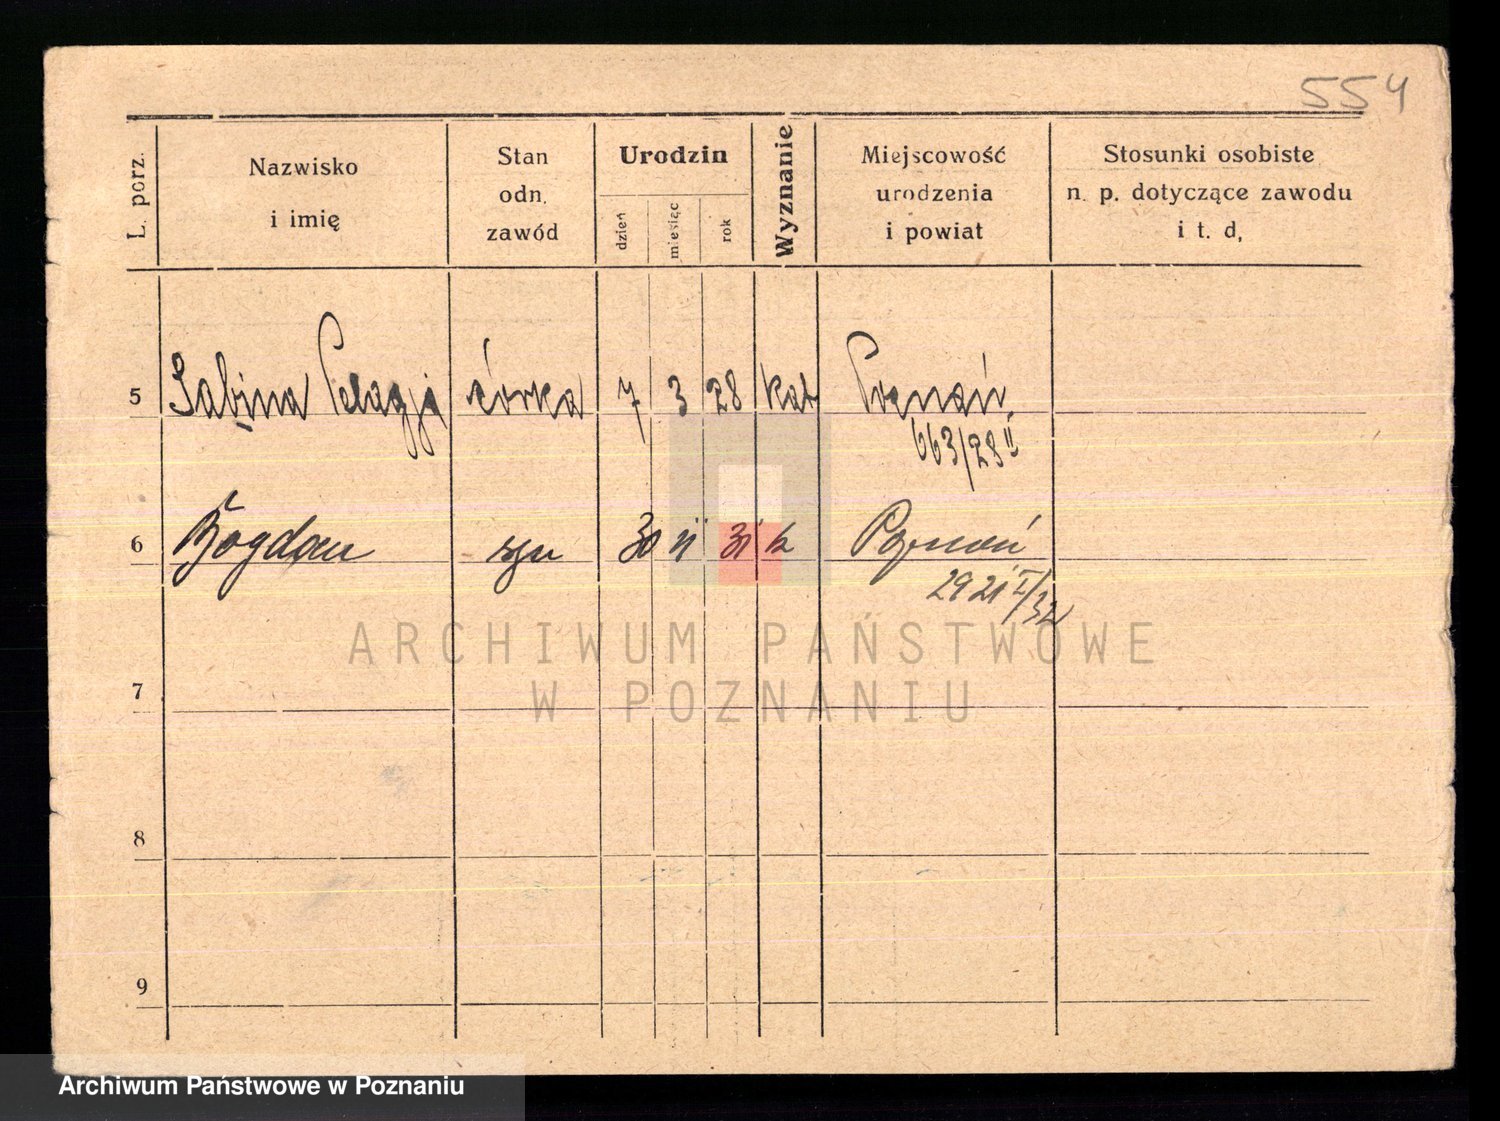 554
L. porz.
Nazwisko
i imię
Stan
odn.
zawód
Urodzin
dzień
miesiąc
rok
Wyznanie
Miejscowość
urodzenia
i powiat
Stosunki osobiste
n. p. dotyczące zawodu
i t. d,
5 Sabina Pelagja córka 7 3 28 kat Poznań
663/28 II
6 Bogdan syn 30 31 k Poznań
29 21 I/32
ARCHIWUM PAŃSTWOWE
W POZNANIU
7
8
9
Archiwum Państwowe w Poznaniu